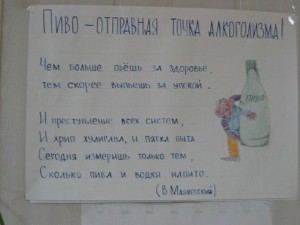 ПИВО – ОТПРАВНАЯ ТОЧКА АЛКОГОЛИЗМА!
Чем больше пьёшь за здоровье,
тем скорее выпьешь за упокой.
И преступление всех систем,
И хрип хулигана, и пятка быта
Сегодня измеришь только тем,
Сколько пива и водки напито.
(В. Маяковский)
ПИВО